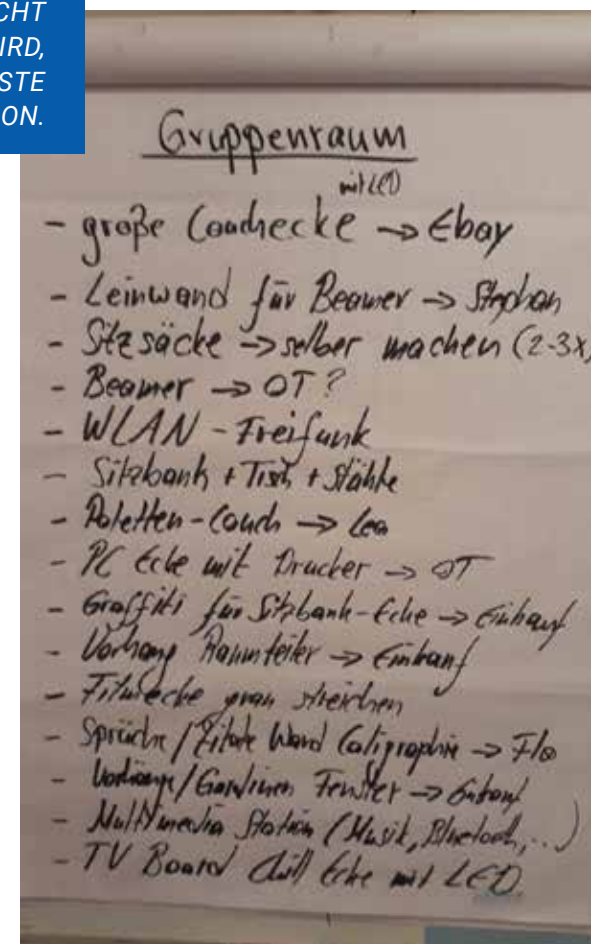 CHT
IRD,
STE
ON.
Gruppenraum
mit LED
- große Couchecke → Ebay
- Leinwand für Beamer → Stephan
- Sitzsäcke → selber machen (2-3x)
- Beamer → OT?
- WLAN - Freifunk
- Sitzbank + Tisch + Stühle
- Paletten-Couch → Lea
- PC Ecke mit Drucker → OT
- Graffiti für Sitzbank-Ecke → Einkauf
- Vorhang Raumteiler → Einkauf
- streichen
- Sprüche/Zitate Wand Caligraphie → Flo
- Vorhänge/Gardinen Fenster → Einkauf
- Multimedia Station (Musik, Bluetooth, ...)
- TV Board Chill Ecke mit LED